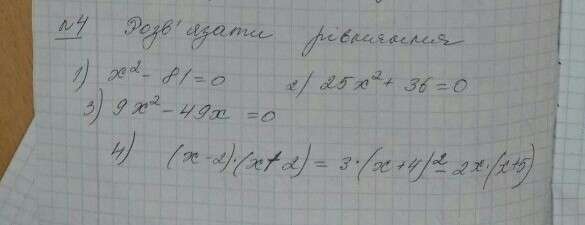 №4 Розв'язати рівняння
1) x² - 81 = 0 2) 25x² + 36 = 0
3) 9x² - 49x = 0
4) (x-2)·(x+2) = 3·(x+4)² - 2x·(x+5)